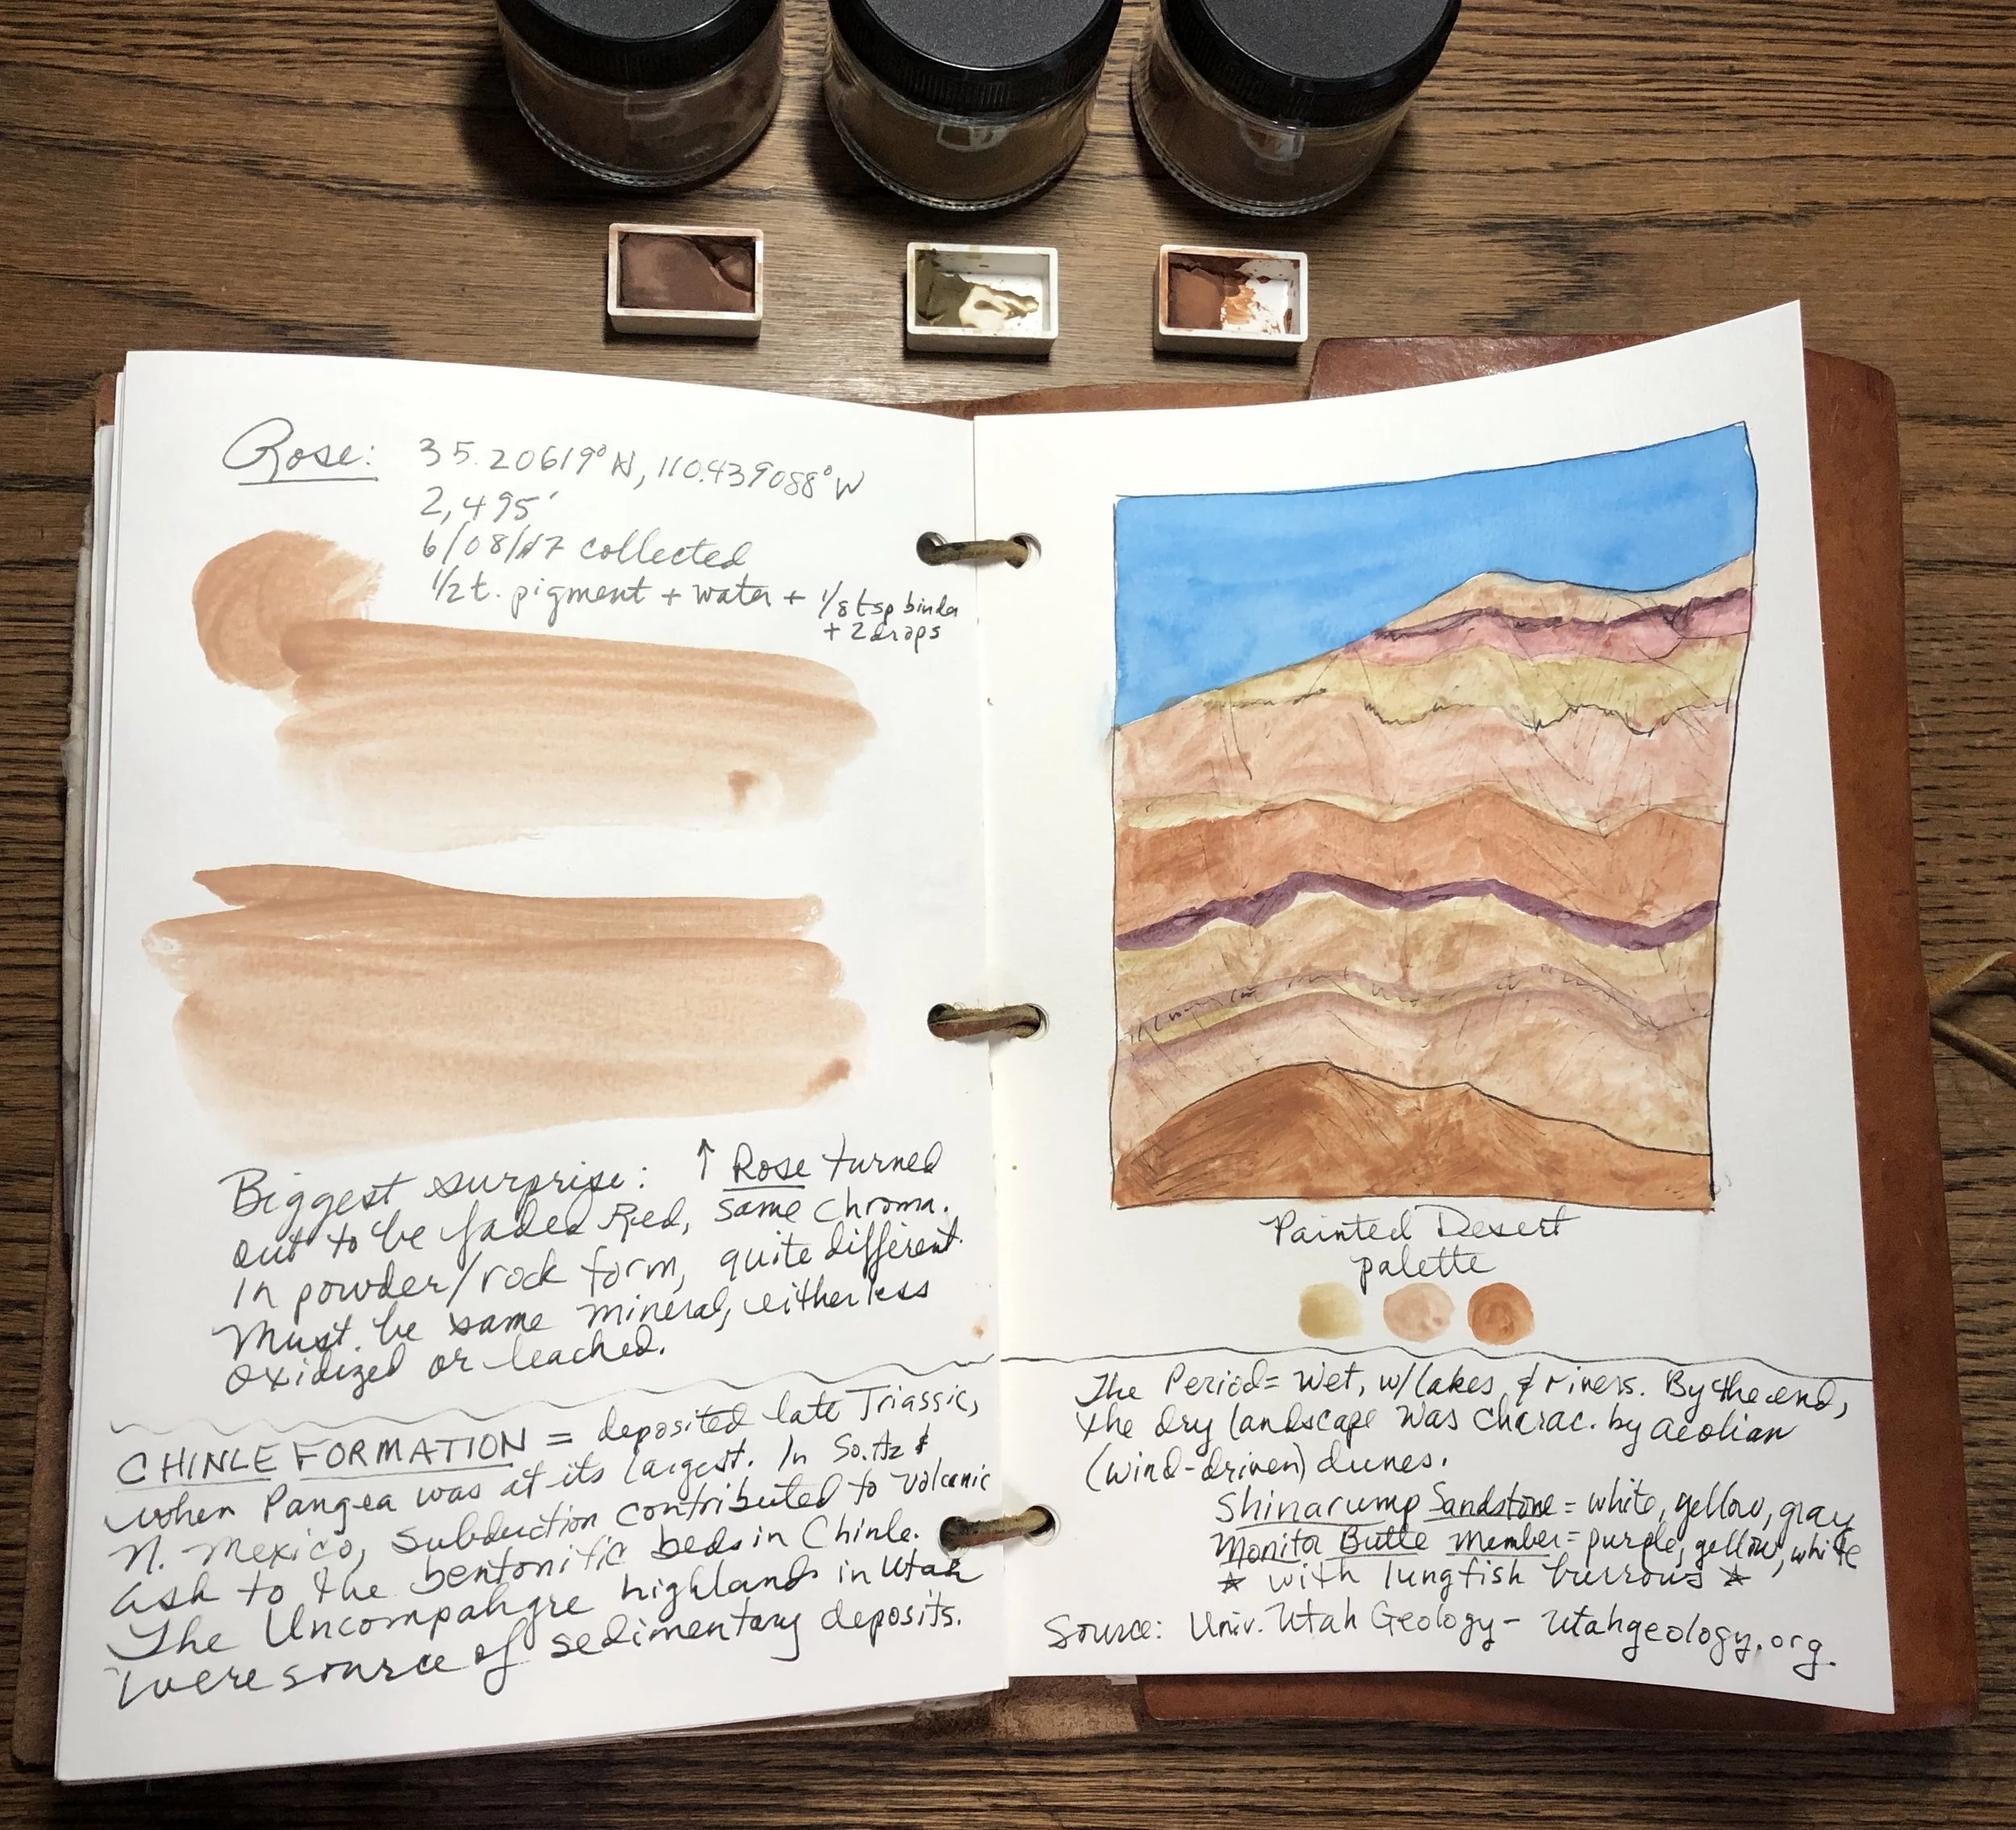 Rose: 35.20619° N, 110.439088° W
2,495'
6/08/17 collected
1/2 t. pigment + water + 1/8 tsp binder
+ 2 drops
Biggest surprise: ↑ Rose turned
out to be faded Red, same chroma.
In powder/rock form, quite different.
Must be same mineral, either less
oxidized or leached.
CHINLE FORMATION = deposited late Triassic,
when Pangea was at its largest. In So. Az &
N. Mexico, subduction contributed to volcanic
ash to the bentonitic beds in Chinle.
The Uncompahgre highlands in Utah
were source of sedimentary deposits.
Painted Desert
palette
The Period = Wet, w/ lakes & rivers. By the end,
the dry landscape was charac. by aeolian
(wind-driven) dunes.
Shinarump Sandstone = white, yellow, gray
Monitor Butte Member = purple, yellow, white
☆ with lungfish burrows ☆
Source: Univ. Utah Geology - utahgeology.org.